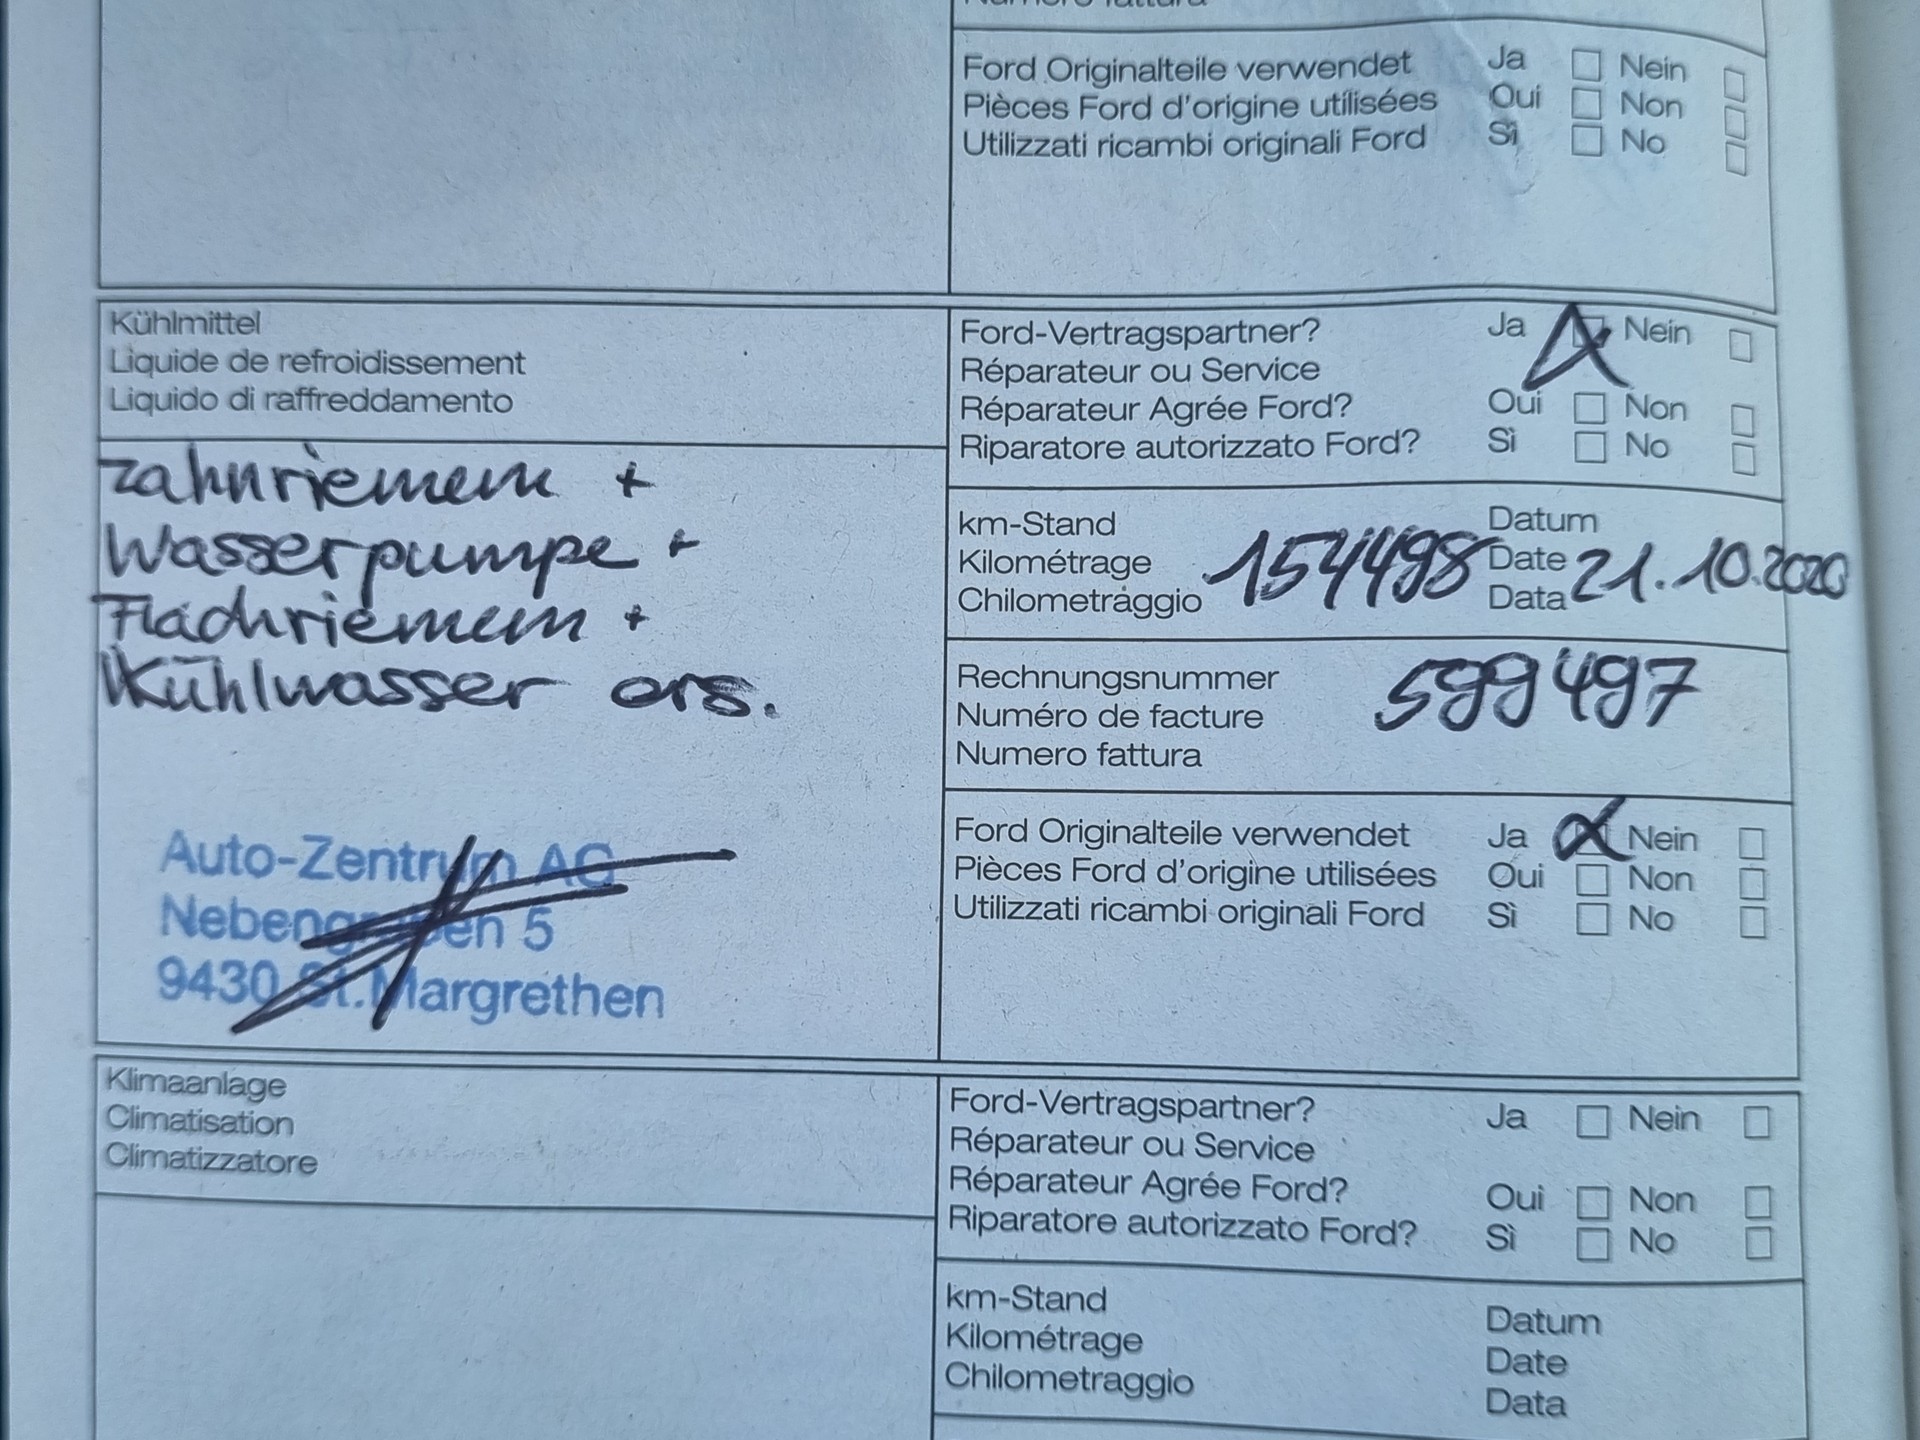 Numero fattura
Ford Originalteile verwendet Ja Nein
Pièces Ford d'origine utilisées Oui Non
Utilizzati ricambi originali Ford Sì No
Kühlmittel
Liquide de refroidissement
Liquido di raffreddamento
Zahnriemem +
Wasserpumpe +
Flachriemem +
Kühlwasser ers.
Auto-Zentrum AG
Nebengraben 5
9430 St.Margrethen
Ford-Vertragspartner? Ja Nein
Réparateur ou Service
Réparateur Agrée Ford? Oui Non
Riparatore autorizzato Ford? Sì No
km-Stand Datum
Kilométrage 154498 Date 21.10.2020
Chilometraggio Data
Rechnungsnummer 599497
Numéro de facture
Numero fattura
Ford Originalteile verwendet Ja Nein
Pièces Ford d'origine utilisées Oui Non
Utilizzati ricambi originali Ford Sì No
Klimaanlage
Climatisation
Climatizzatore
Ford-Vertragspartner? Ja Nein
Réparateur ou Service
Réparateur Agrée Ford? Oui Non
Riparatore autorizzato Ford? Sì No
km-Stand Datum
Kilométrage Date
Chilometraggio Data